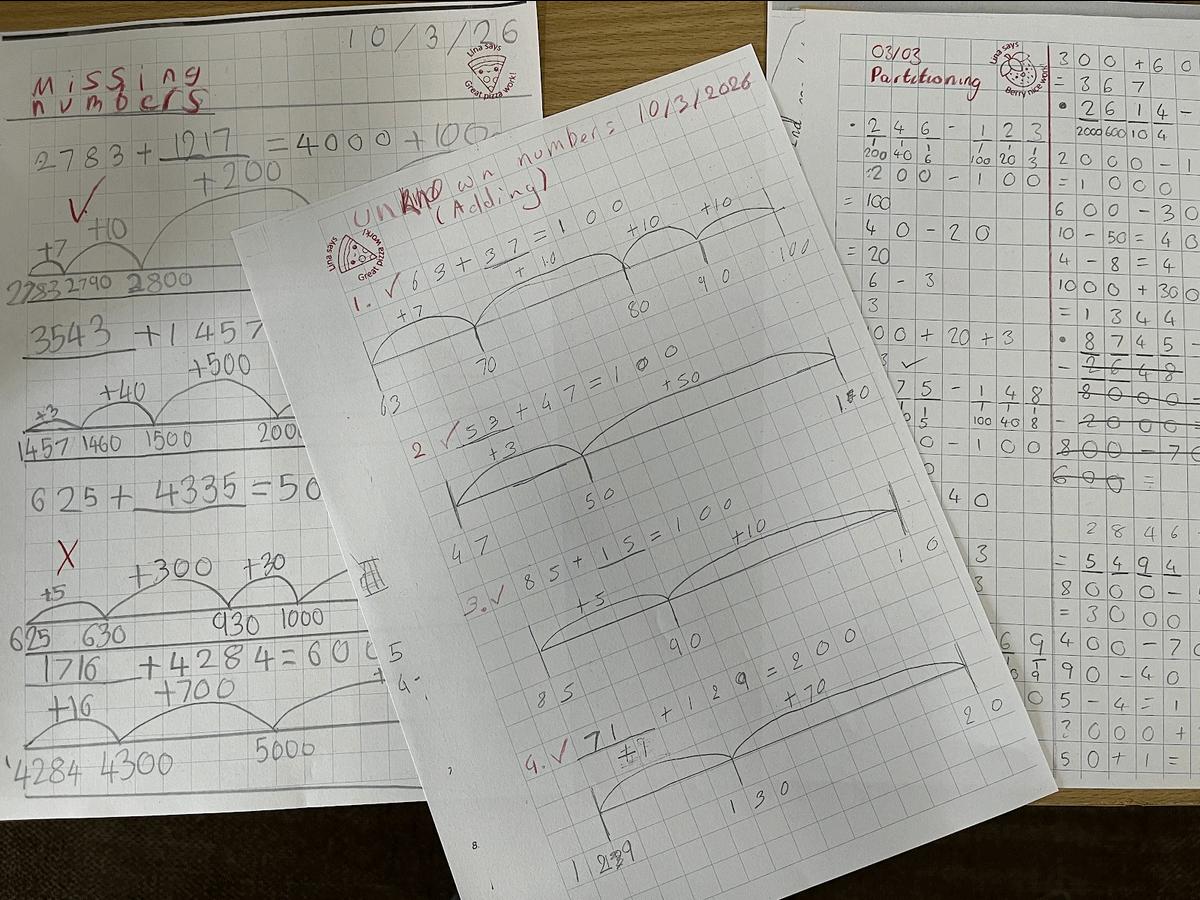 10/3/26
Missing
numbers
Una says
Great pizza work!
2783 + 1217 = 4000 + 100
+200
+7 +10
2783 2790 2800
3543 + 1457
+3 +40 +500
1457 1460 1500 200
625 + 4335 = 50
X
+5 +300 +30
625 630 930 1000
1716 + 4284 = 600
+16 +700
4284 4300 5000
Unknown numbers 10/3/2026
(Adding)
Una says
Great pizza work!
1. ✓ 63 + 37 = 100
+7 +10 +10 +10
63 70 80 90 100
2 ✓ 53 + 47 = 100
+3 +50
47 50
3. ✓ 85 + 15 = 100
+5 +10
85 90 10
4. ✓ 71 + 129 = 200
+70
130 20
8.
03/03
Partitioning
Una says
Berry nice work!
246 - 123
200 40 6 100 20 3
200 - 100
= 100
40 - 20
= 20
6 - 3
3
00 + 20 + 3
✓
75 - 148
5 100 40 8
0 - 100
40
3
3
69
300 + 60
= 367
2614 -
2000 600 10 4
2000 - 1
= 1000
600 - 30
10 - 50 = 40
4 - 8 = 4
1000 + 300
= 1344
8745 -
- 2648
8000 =
- 2000 =
800 - 70
600 =
2846
= 5494
8000 -
= 3000
400 - 70
90 - 40
5 - 4 = 1
000 +
50 + 1 =